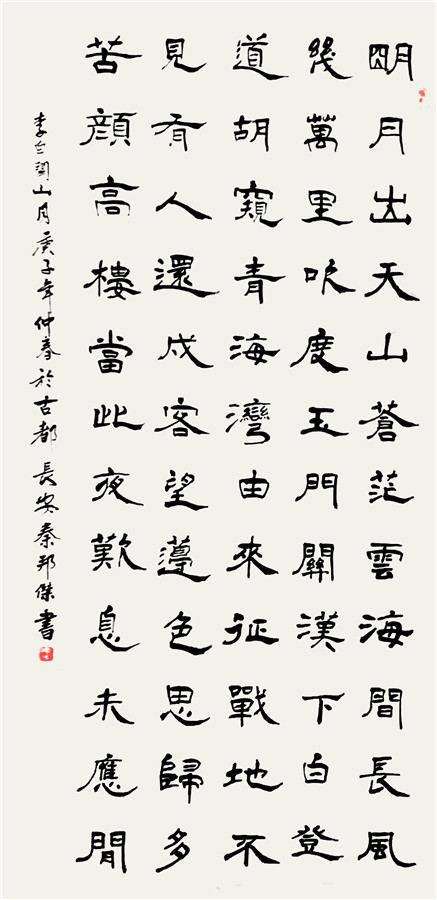 朙月出天山蒼茫雲海間長風
幾萬里吹度玉門關漢下白登
道胡窺青海灣由來征戰地不
見有人還戍客望邊色思歸多
苦顏高樓當此夜歎息未應閒
李白關山月庚子年仲春於古都長安秦邦傑書